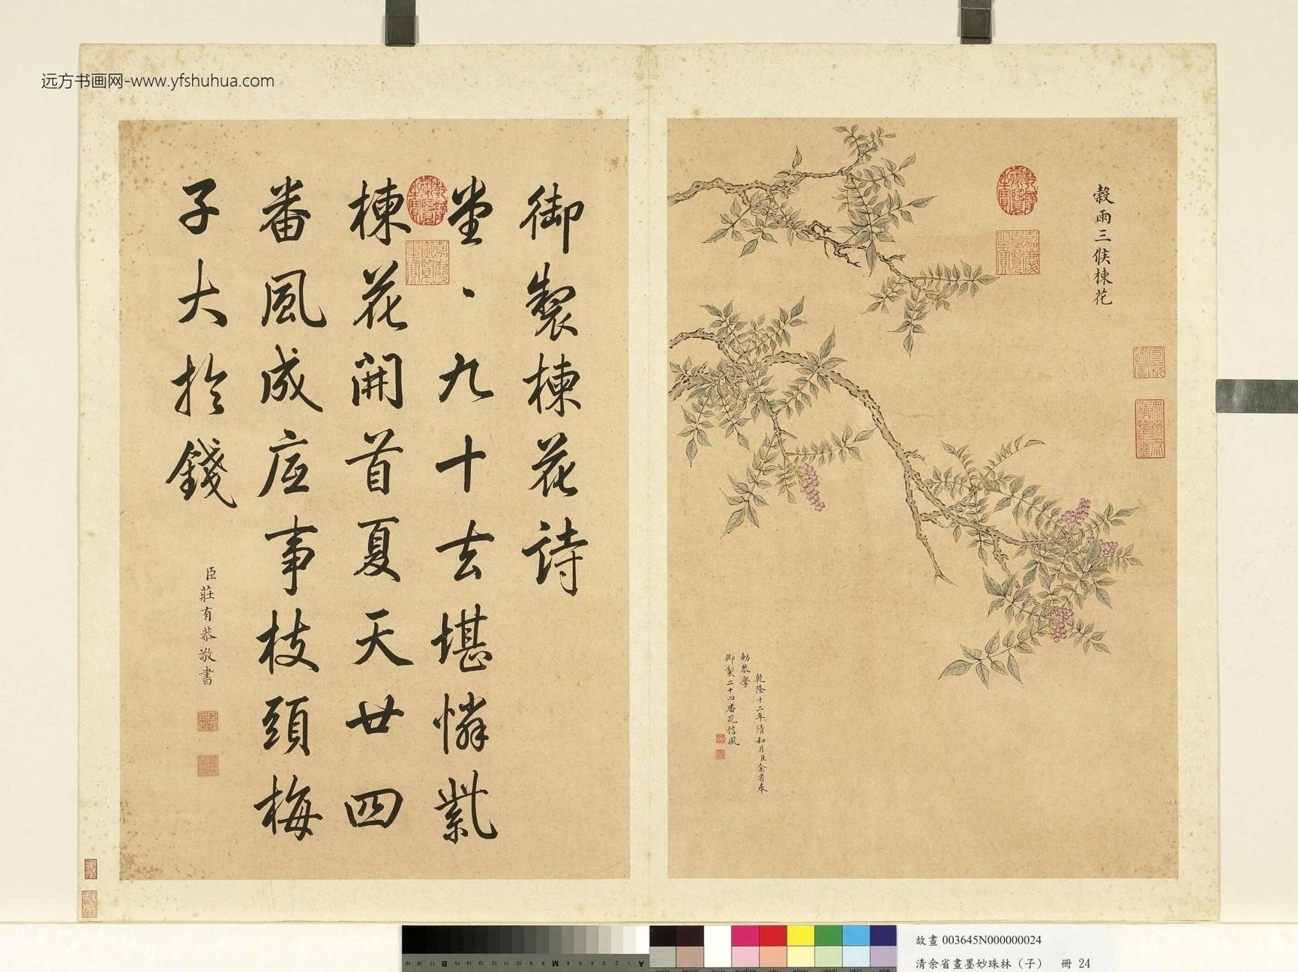 远方书画网-www.yfshuhua.com
穀雨三候楝花
乾隆十二年清和月臣余省奉
勅恭學
御製二十四番花信風
御製楝花詩
堂丶九十去堪憐紫
楝花開首夏天廿四
番風成底事枝頭梅
子大於錢
臣莊有恭敬書
故畫 003645N000000024
清余省畫墨妙珠林（子） 冊 24